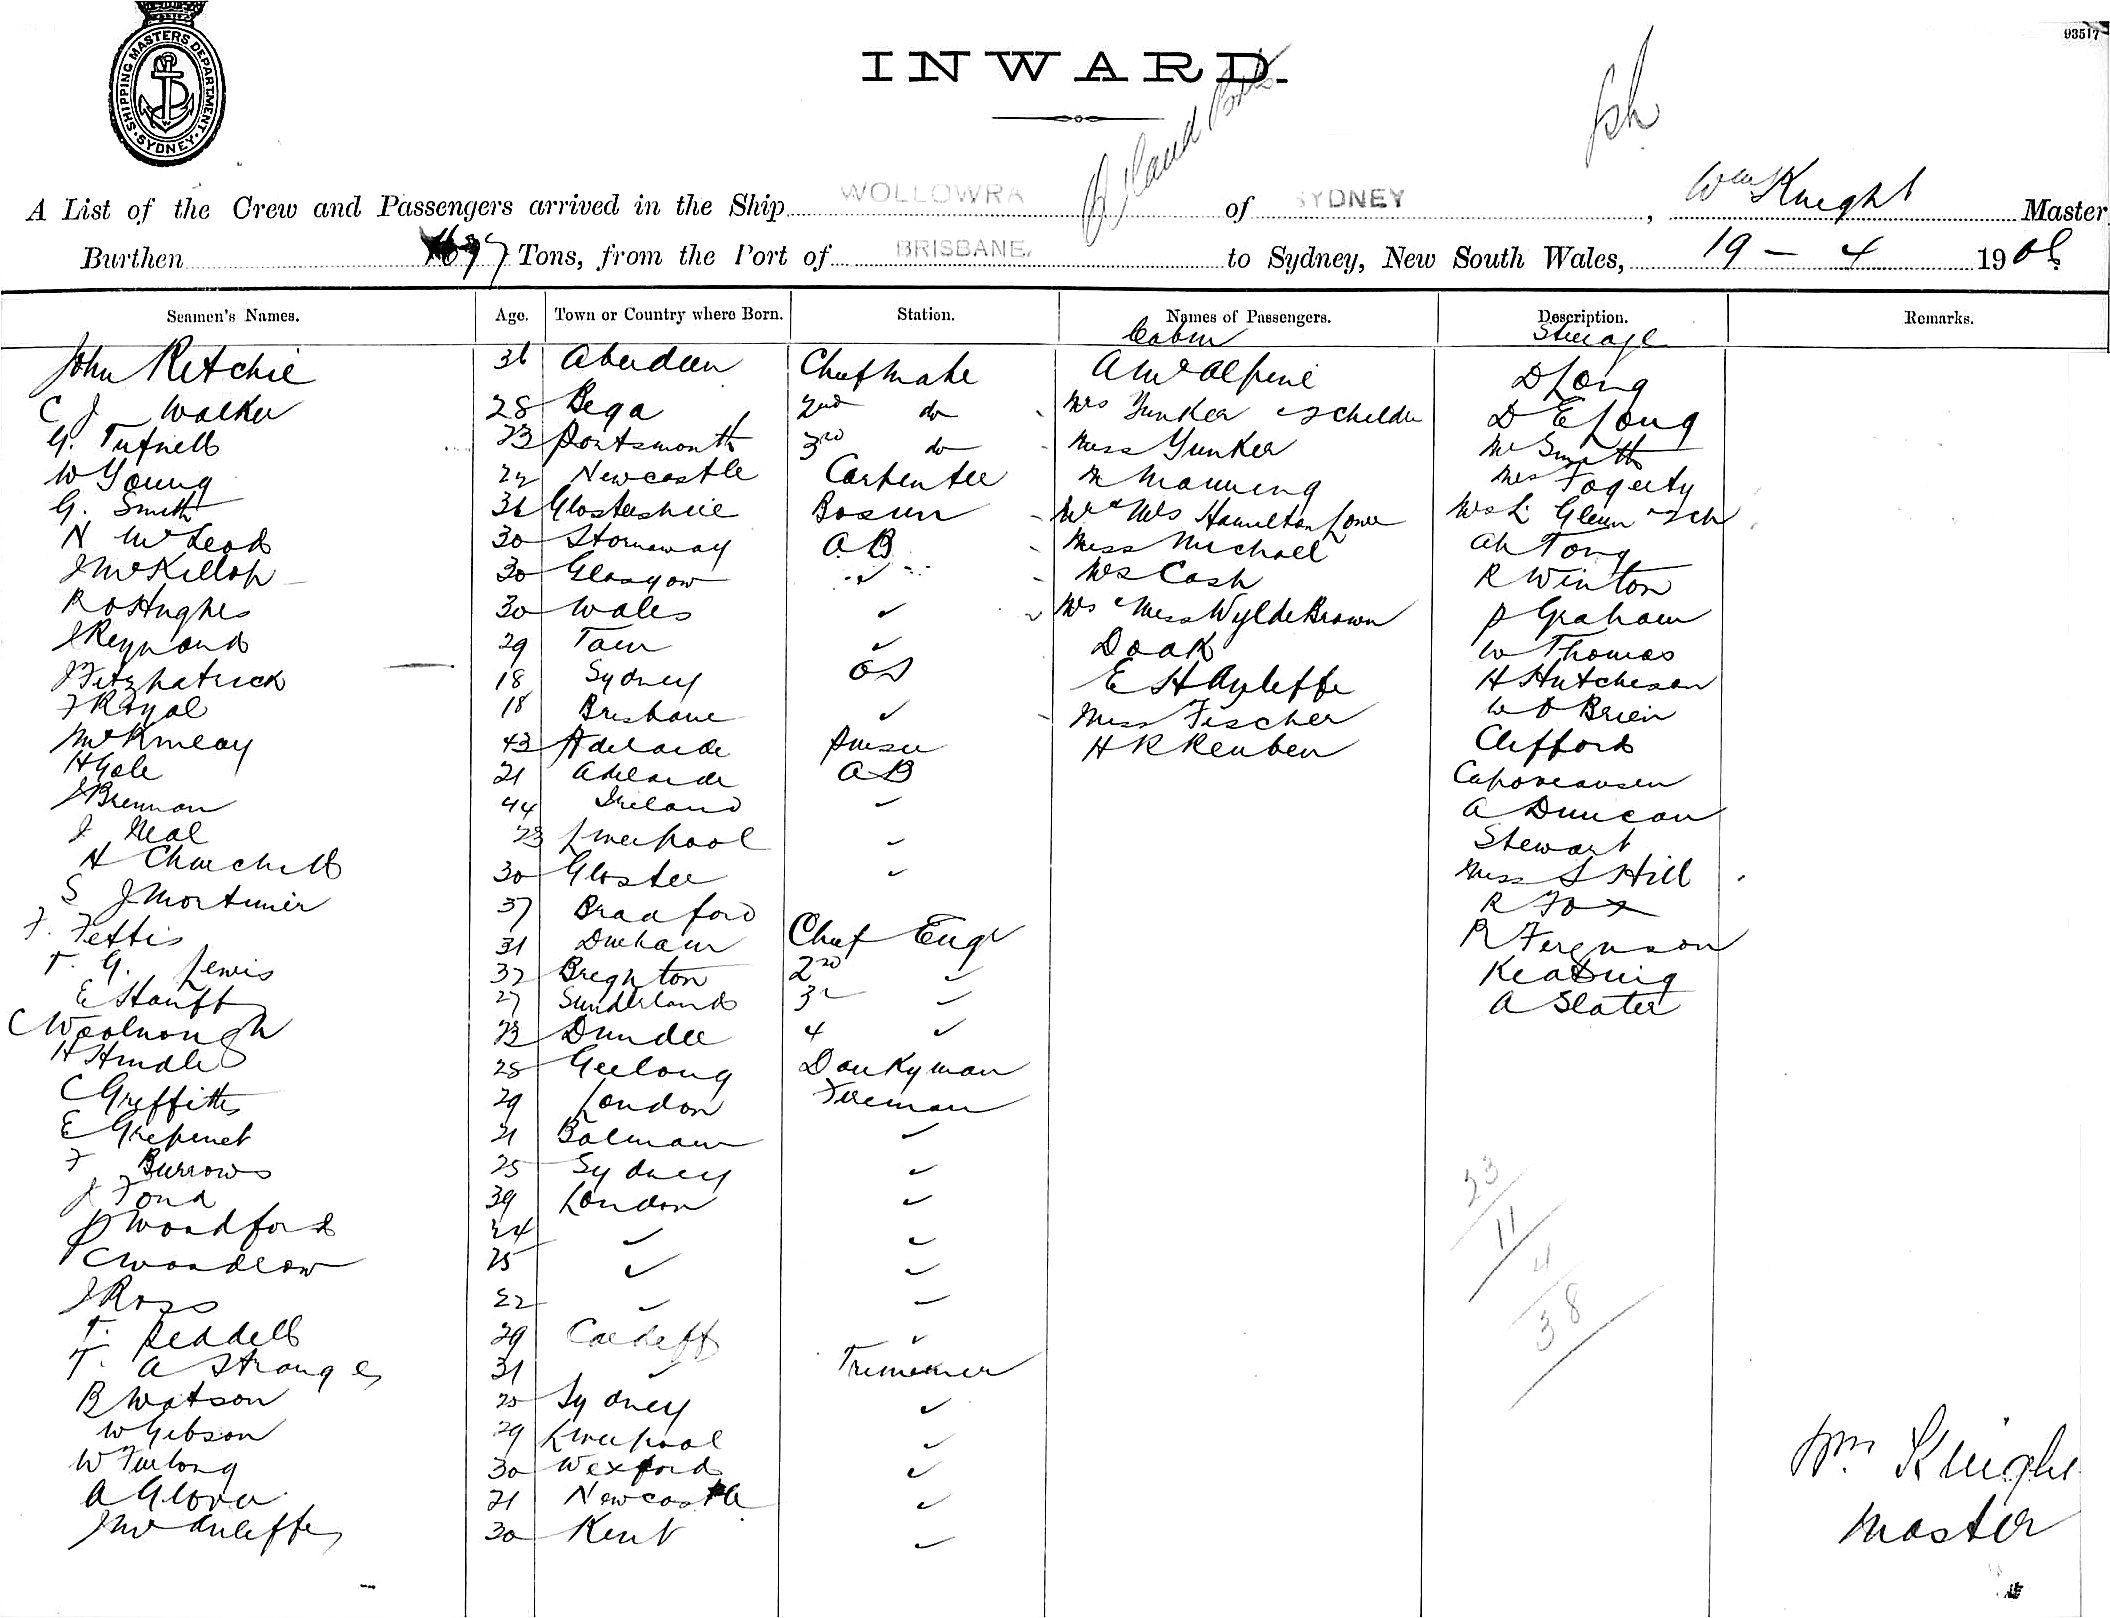 SHIPPING MASTERS DEPARTMENT
SYDNEY
93517
INWARD.
A List of the Crew and Passengers arrived in the Ship WOLLOWRA of SYDNEY, Wm Knight Master
Burthen Tons, from the Port of BRISBANE. to Sydney, New South Wales, 19 - 4 190
Seamen's Names. Age. Town or Country where Born. Station. Names of Passengers. Description. Remarks.
Cabin Steerage
John Ritchie 36 Aberdeen Chief Mate A McAlpine D Long
C J Walker 28 Bega 2nd do Mrs Yunker & childn D E Long
G. Tufnell 23 Portsmouth 3rd do Miss Yunker Mr Smith
W Young 22 Newcastle Carpenter M Manning Mrs Fogerty
G. Smith 36 Glostershire Bosun Mr & Mrs Hamilton Lowe Glenn
N McLeod 30 Stornaway AB Miss Michael Ah Tong
J McKillop 30 Glasgow ✓ Mrs Cash R Winton
R O Hughes 30 Wales ✓ Mrs & Miss Wylde Brown P Graham
J Reynolds 29 ✓ Doak W Thomas
J Fitzpatrick 18 Sydney OS E H Ayleffe H Hutcheson
F Royal 18 Brisbane ✓ Miss Fischer W O Brien
43 Adelaide H R Reuben Clifford
H Gale 21 Adelaide AB
J Brennan 44 Ireland ✓ A Duncan
J Neal 23 Liverpool ✓ Stewart
H Churchill 30 Gloster ✓ Miss S Hill
S J Mortimer 37 Bradford R Fox
F. Fettis 31 Durham Chief Engr R Ferguson
T. G. Lewis 32 Brighton 2nd ✓ Keating
E Hauff 27 Sunderland 3rd ✓ A Slater
C Woolnough 23 Dundee 4 ✓
H Hindle 28 Geelong Donkyman
C Griffiths 29 London Fireman
E 21 Balmain ✓
F Burrows 25 Sydney ✓
J Fond 39 London ✓
P Woodford 24 ✓ ✓
C Woodlow 25 ✓ ✓
J Ross 22 ✓ ✓
T. Peddell 29 Cardeff ✓
T. A Strange 31 ✓ Trimmer
B Watson 25 Sydney ✓
W Gibson 29 Liverpool ✓
W Furlong 30 Wexford ✓
A Glover 21 Newcastle ✓
30 Kent ✓
23
11
4
38
Wm. Knight
Master